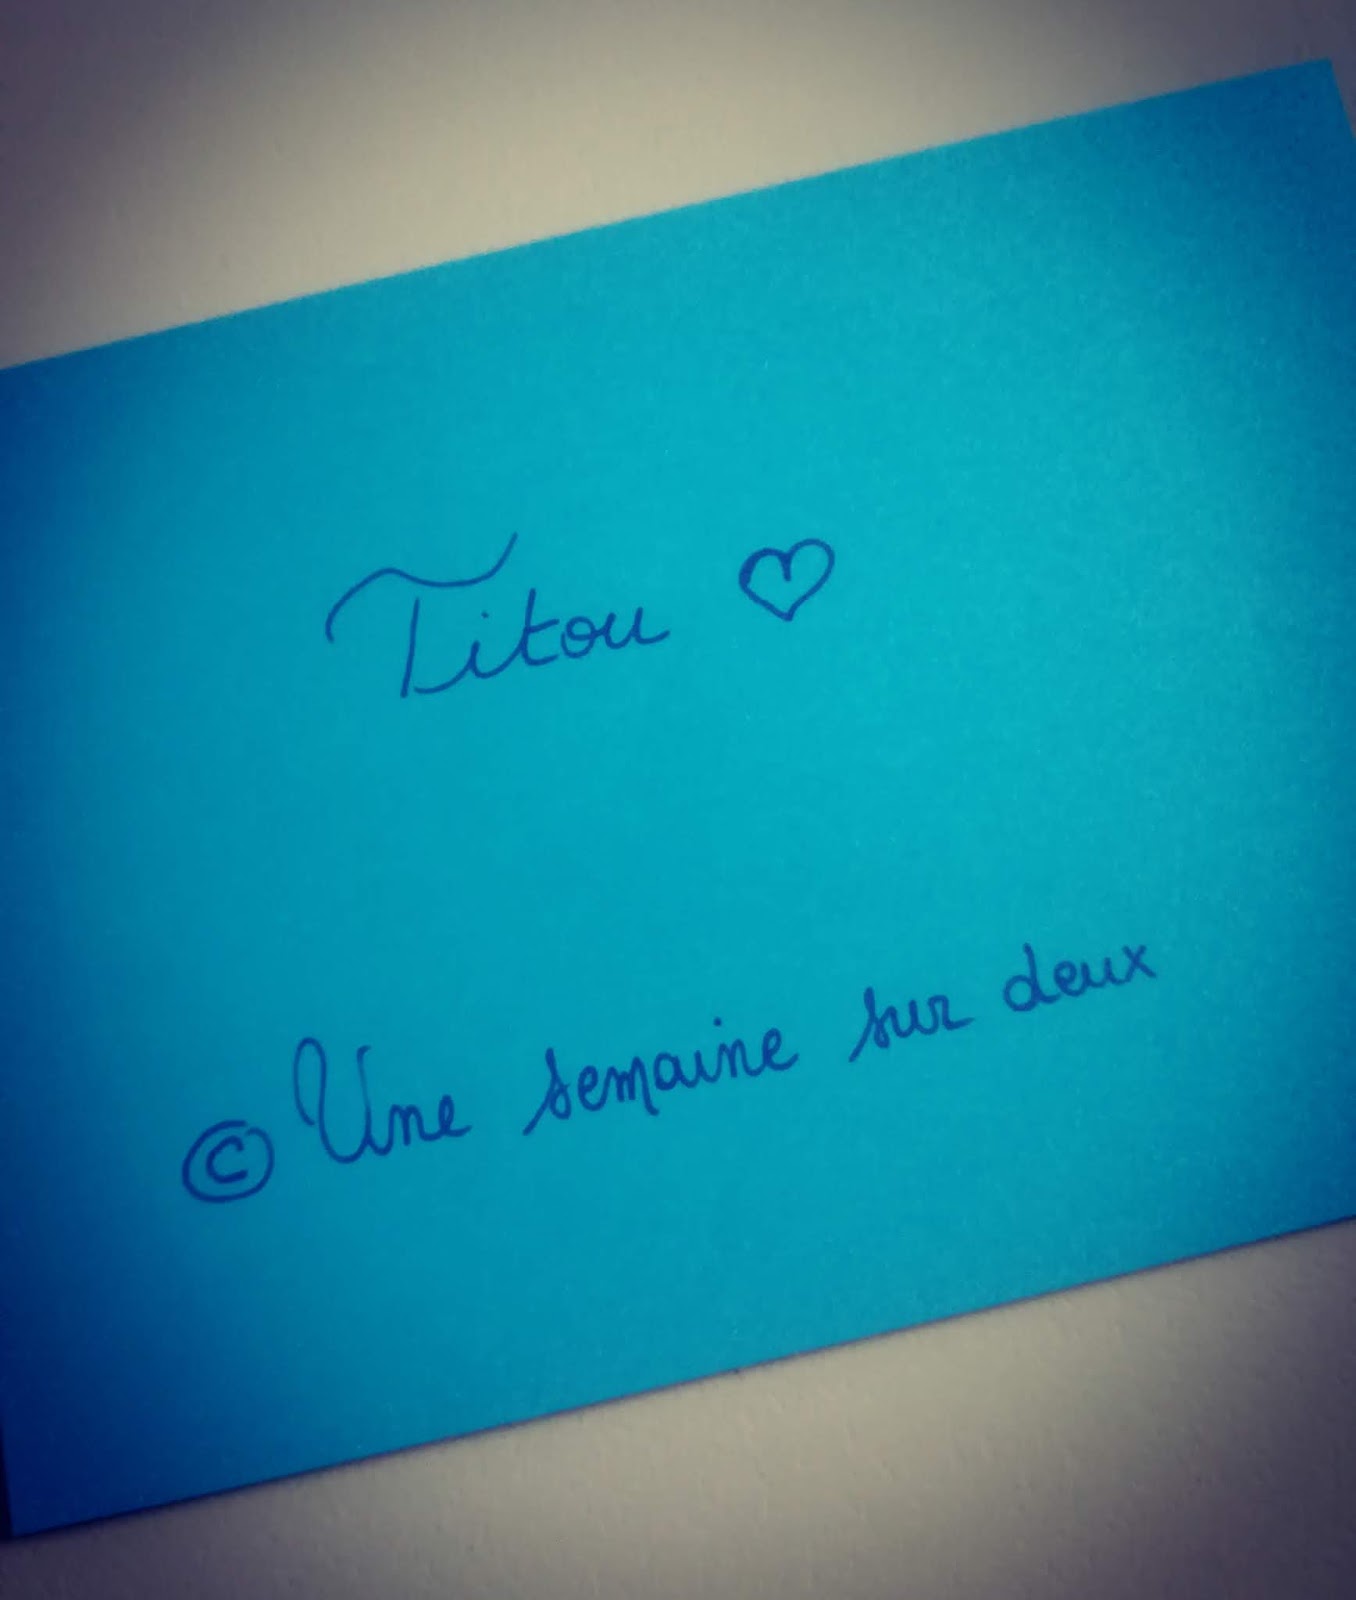 Titou ♡
© Une semaine sur deux